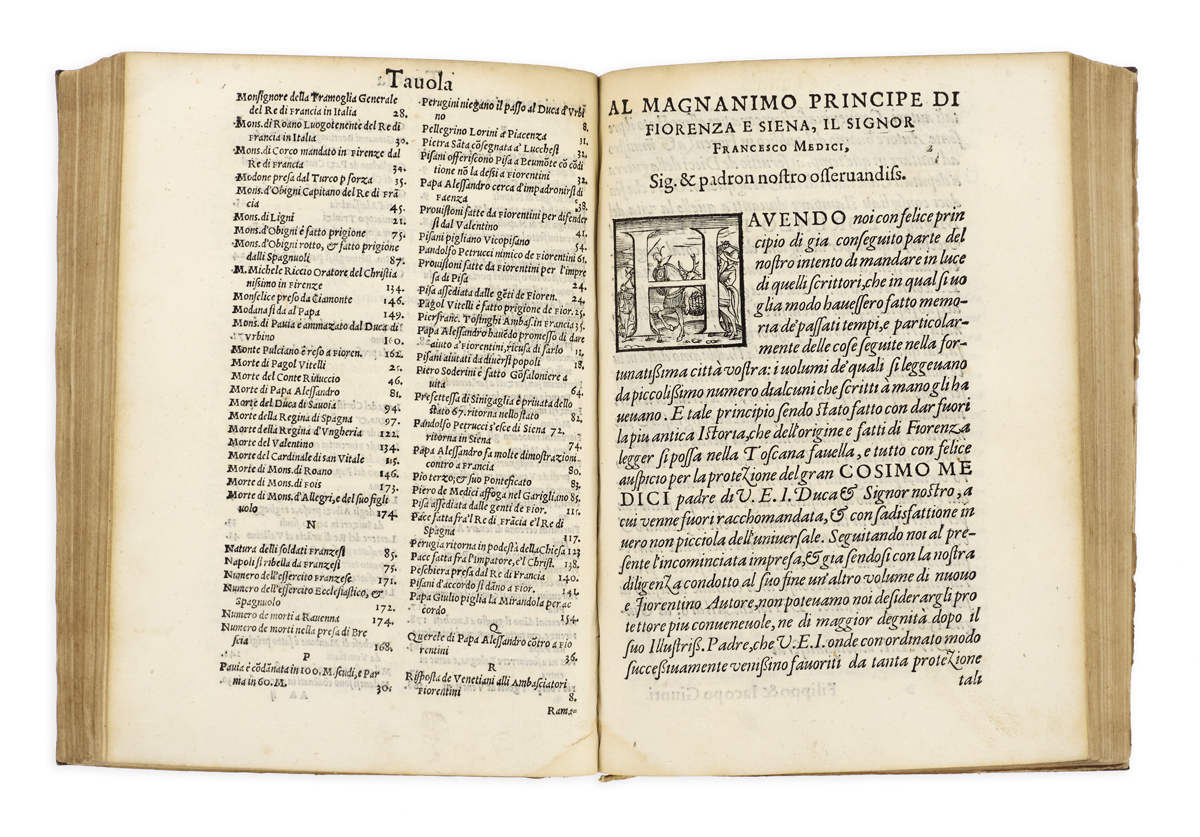 Tauola
Monsignore della Tramoglia Generale
del Re di Francia in Italia 28.
Mons. di Roano Luogotenente del Re di
Francia in Italia 30.
Mons. di Corco mandato in Firenze dal
Re di Francia 34.
Modone presa dal Turco p forza 35.
Mons. d'Obigni Capitano del Re di Frã
cia 45.
Mons. di Ligni 21.
Mons. d'Obigni è fatto prigione 75.
Mons. d'Obigni rotto, & fatto prigione
dalli Spagnuoli 87.
M. Michele Riccio Oratore del Christia
nissimo in Firenze 134.
Monselice preso da Ciamonte 146.
Modana si da al Papa 149.
Mons. di Pauia è ammazato dal Duca di
Vrbino 160.
Monte Pulciano è reso a Fioren. 162.
Morte di Pagol Vitelli 25.
Morte del Conte Rinuccio 46.
Morte di Papa Alessandro 81.
Morte del Duca di Sauoia 94.
Morte della Regina di Spagna 97.
Morte della Regina d'Vngheria 122.
Morte del Valentino 134.
Morte del Cardinale di san Vitale 115.
Morte di Mons. di Roano 146.
Morte di Mons. di Fois 173.
Morte di Mons. d'Allegri, e del suo figli
uolo 174.
N
Natura delli soldati Franzesi 85.
Napoli si ribella da Franzesi 75.
Numero dell'essercito Franzese 171.
Numero dell'essercito Ecclesiastico, &
Spagnuolo 172.
Numero de morti a Rauenna 174.
Numero de morti nella presa di Bre
scia 168.
P
Pauia è cõdãnata in 100. M. scudi, e Par
ma in 60. M. 30.
Perugini niegano il passo al Duca d'Vrbi
no 8.
Pellegrino Lorini a Piacenza 31.
Pietra Sãta cõsegnata a' Lucchesi 32.
Pisani offeriscono Pisa a Beumõte cõ cõdi
tione nõ la dessi a Fiorentini 32.
Papa Alessandro cerca d'impadronirsi di
Faenza 38.
Prouisioni fatte da Fiorentini per difender
si dal Valentino 41.
Pisani pigliano Vicopisano 54.
Pandolfo Petrucci nimico de Fiorentini 61.
Prouisioni fatte da Fiorentini per l'impre
sa di Pisa 24.
Pisa assediata dalle gẽti de Fioren. 24.
Pagol Vitelli è fatto prigione de Fior. 25.
Pierfranc. Tosinghi Ambas. in Francia 35.
Papa Alessandro hauẽdo promesso di dare
aiuto a Fiorentini, ricusa di farlo 11.
Pisani aiutati da diuersi popoli 18.
Piero Soderini è fatto Gõfaloniere a
uita 64.
Prefettessa di Sinigaglia è priuata dello
stato 67. ritorna nello stato 82.
Pandolfo Petrucci s'esce di Siena 72.
ritorna in Siena 74.
Papa Alessandro fa molte dimostrazioni
contro a Francia 80.
Pio terzo, & suo Ponteficato 83.
Piero de Medici affoga nel Garigliano 85.
Pisa assediata dalle genti de Fior. 111.
Pace fatta fra'l Re di Frãcia e'l Re di
Spagna 117.
Perugia ritorna in podestà della Chiesa 123
Pace fatta frà l'Impatore, e'l Christ. 138.
Peschiera presa dal Re di Francia 140.
Pisani d'accordo si dãno a Fior. 141.
Papa Giulio piglia la Mirandola per ac
cordo 154.
Q
Querele di Papa Alessandro cõtro a Fio
rentini 36.
R
Risposta de Venetiani alli Ambasciatori
Fiorentini 8.
Rama-
AL MAGNANIMO PRINCIPE DI
FIORENZA E SIENA, IL SIGNOR
FRANCESCO MEDICI,
Sig. & padron nostro osseruandiss.
HAVENDO noi con felice prin
cipio di gia conseguito parte del
nostro intento di mandare in luce
di quelli scrittori, che in qual si uo
glia modo hauessero fatto memo-
ria de' passati tempi, e particolar-
mente delle cose seguite nella for-
tunatissima città vostra: i uolumi de' quali si leggeuano
da piccolissimo numero dialcuni che scritti à mano gli ha
ueuano. E tale principio sendo stato fatto con dar fuori
la piu antica Istoria, che dell'origine e fatti di Fiorenza
legger si possa nella Toscana fauella, e tutto con felice
auspicio per la protezione del gran COSIMO ME
DICI padre di V. E. I. Duca & Signor nostro, a
cui venne fuori racchomandata, & con sadisfattione in
uero non picciola dell'uniuersale. Seguitando noi al pre-
sente l'incominciata impresa, & gia sendosi con la nostra
diligenza condotto al suo fine un'altro volume di nuouo
e Fiorentino Autore, non poteuamo noi desiderargli pro
tettore piu conueneuole, ne di maggior degnità dopo il
suo Illustriss. Padre, che V. E. I. onde con ordinato modo
successiuamente venissino fauoriti da tanta protezione
tali
Filippo & Iacopo Giunti.